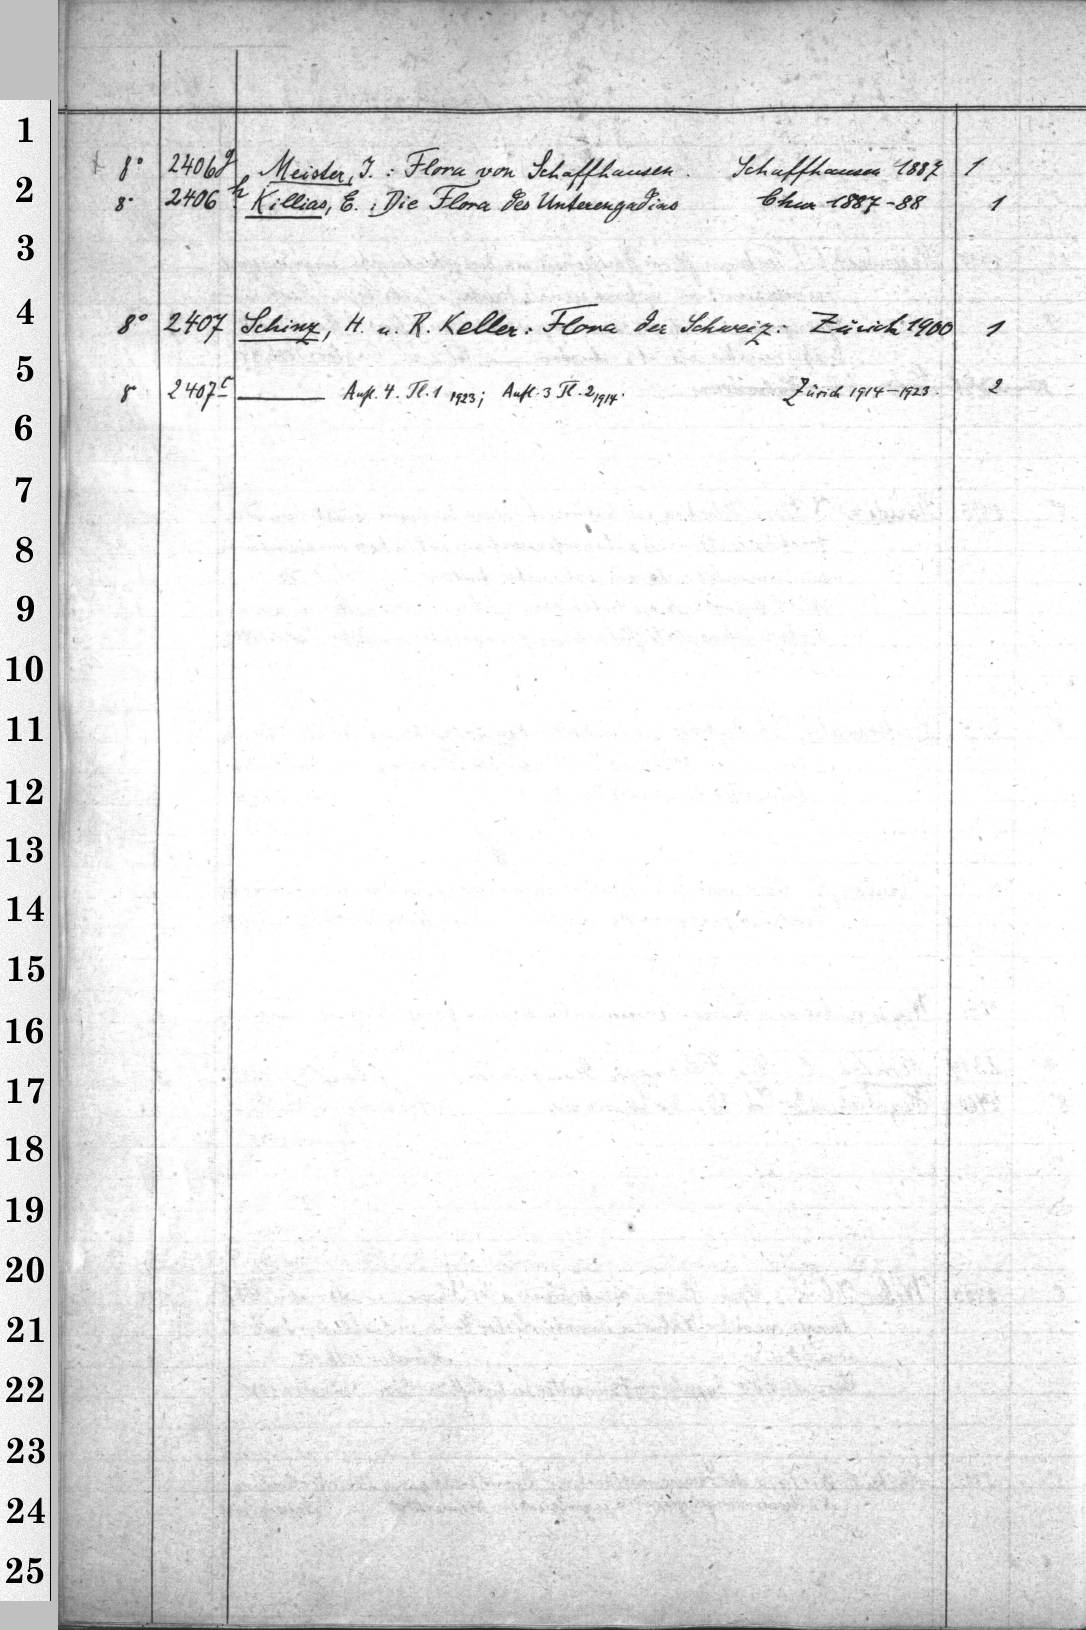 1
8° 2406g Meister, J.: Flora von Schaffhausen. Schaffhausen 1887 1
2
8° 2406h Killias, E.: Die Flora des Unterengadins Chur 1887-88 1
3
4
8° 2407 Schinz, H. u. R. Keller: Flora der Schweiz. Zürich 1900 1
5
8 2407c ——— Aufl. 4. Tl. 1 1923; Aufl. 3 Tl. 2 1914. Zürich 1914-1923. 2
6
7
8
9
10
11
12
13
14
15
16
17
18
19
20
21
22
23
24
25